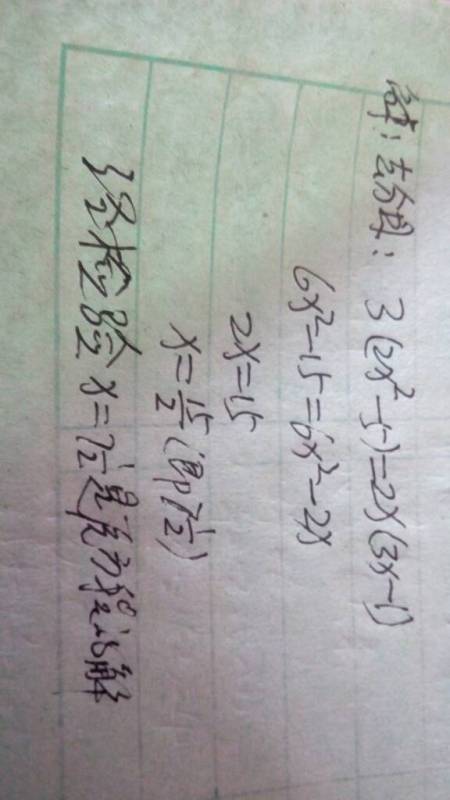 解：去分母：3(2x²-5)=2x(3x-1)
6x²-15=6x²-2x
2x=15
x=15/2(即7½)
经检验x=7½是方程的解